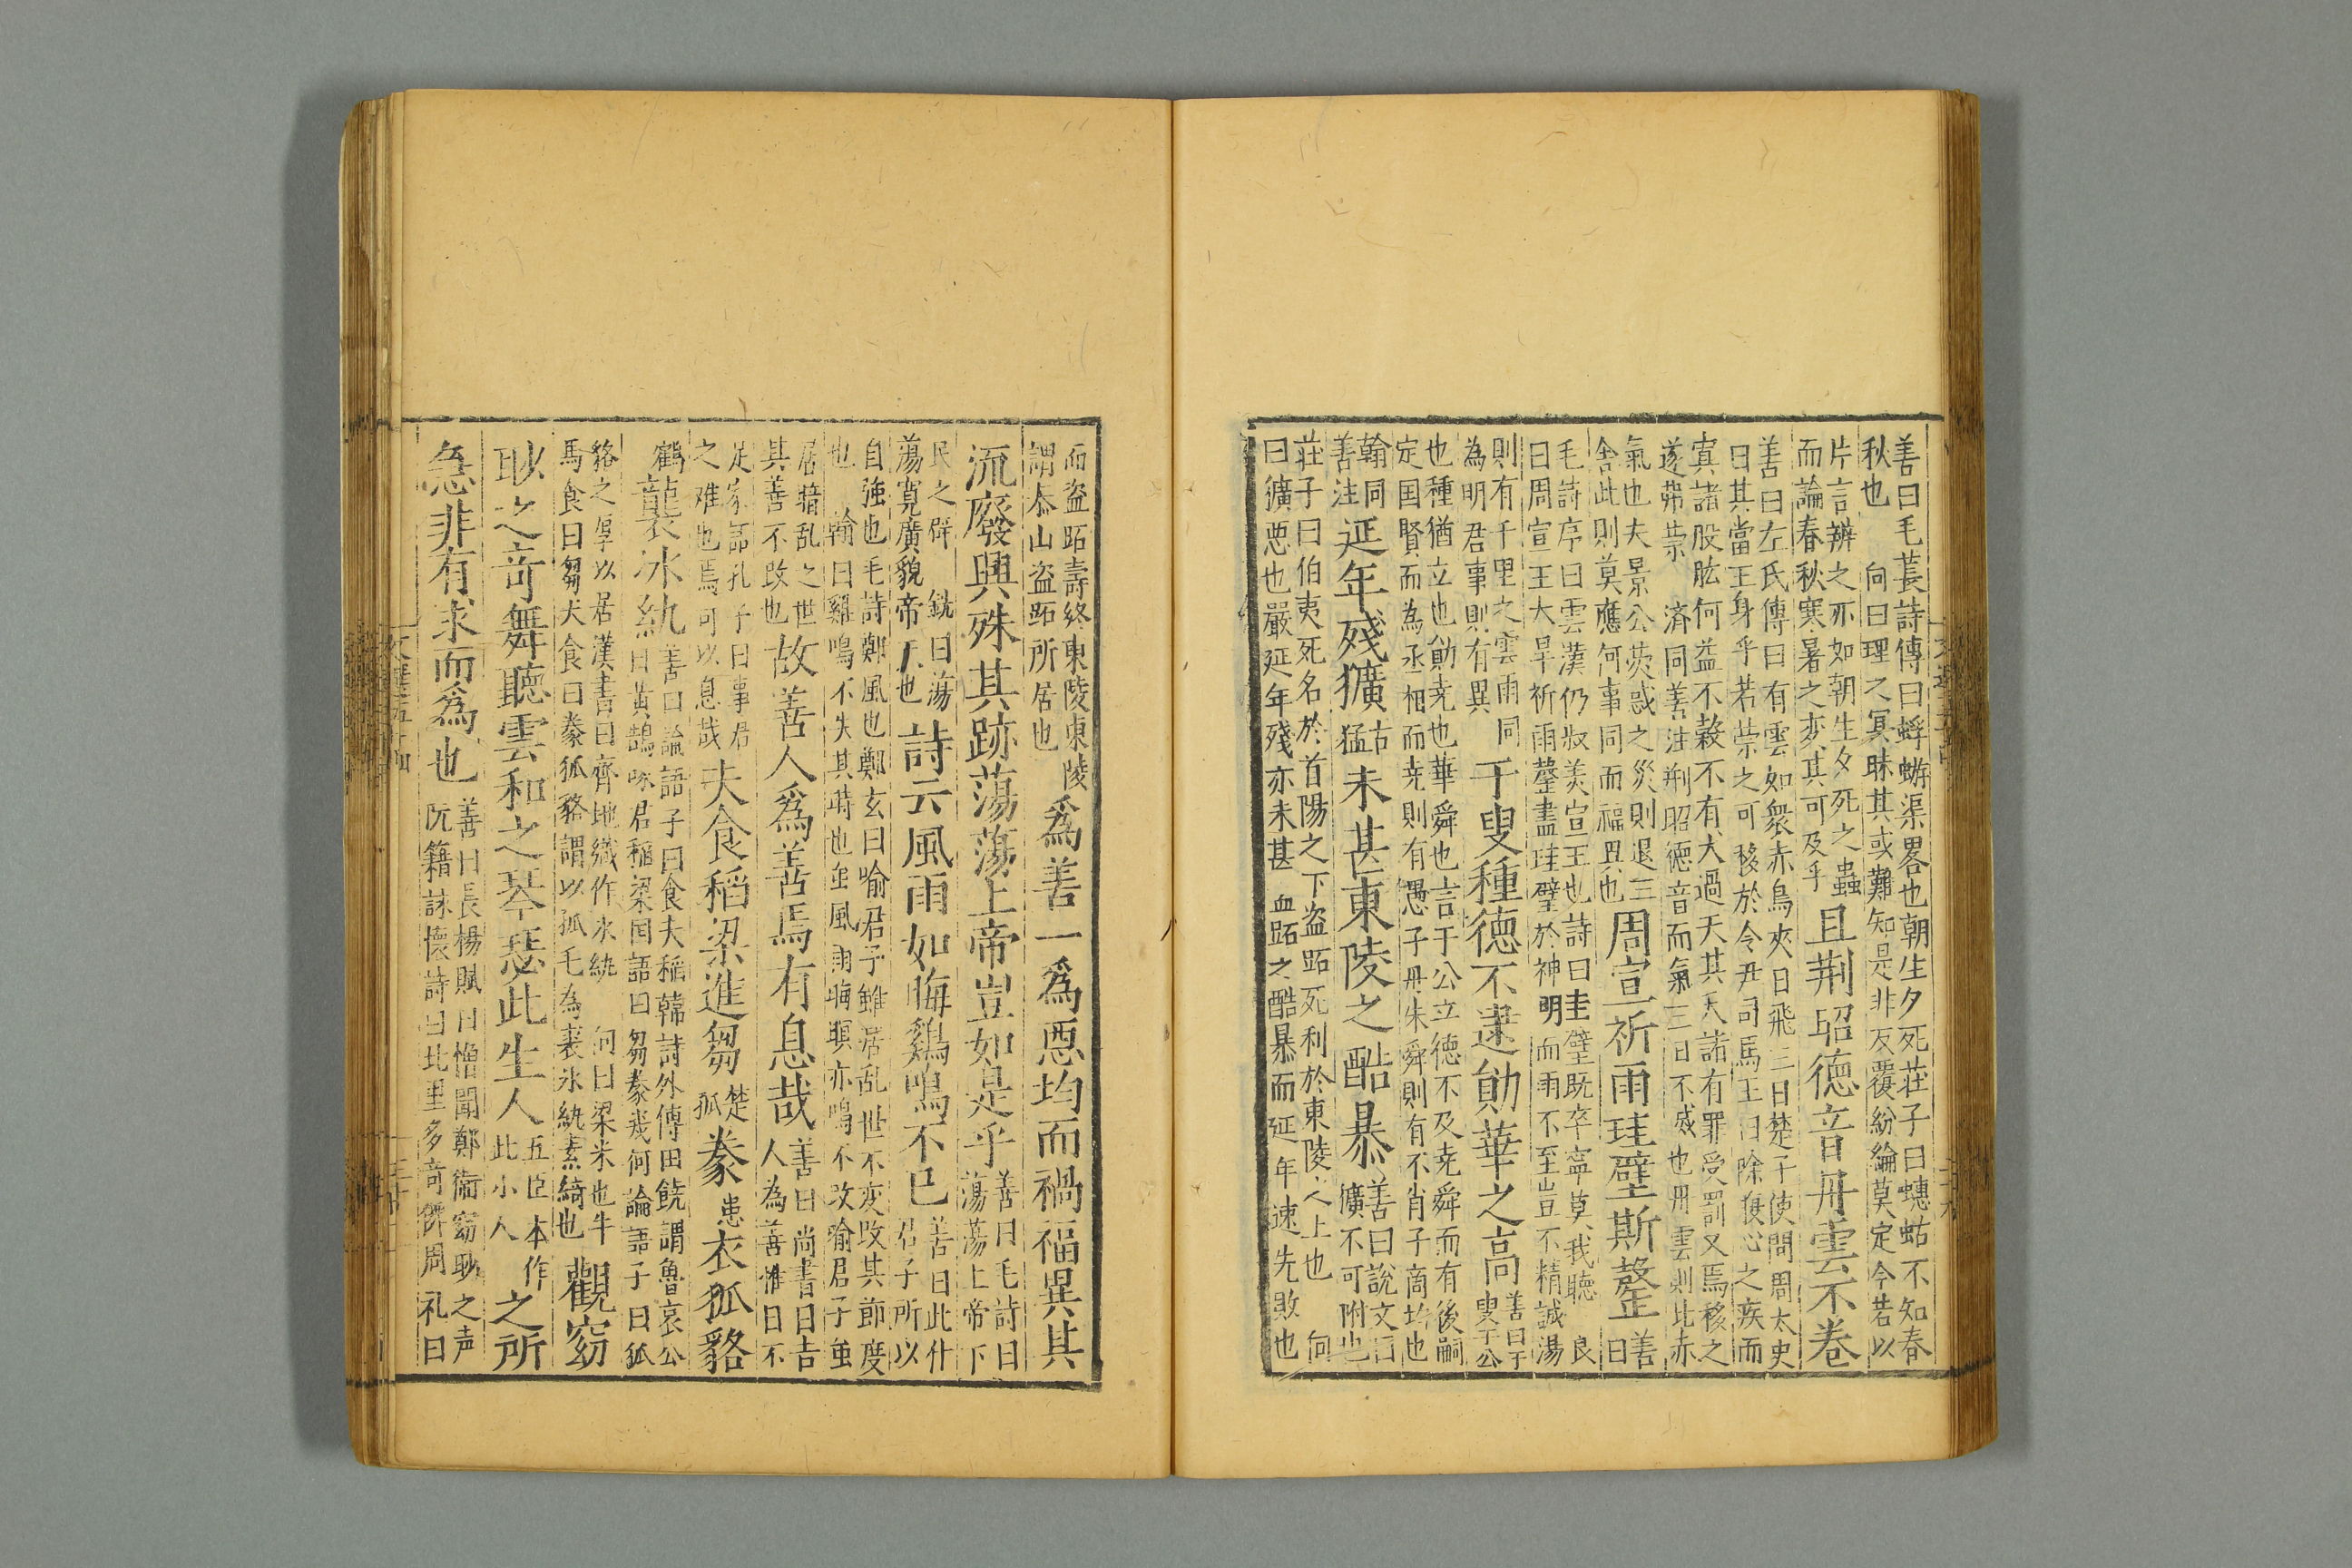 善曰毛萇詩傳曰蜉蝣渠畧也朝生夕死莊子曰蟪蛄不知春
秋也 向曰理之冥昧其或難知是非反覆紛綸莫定今若以
片言辨之亦如朝生夕死之蟲
而論春秋寒暑之変其可及乎
且荆昭德音丹雲不卷
善曰左氏傳曰有雲如衆赤鳥夾日飛三日楚子使問周太史
曰其當王身乎若禜之可移於令尹司馬王曰除腹心之疾而
寘諸股肱何益不榖不有大過天其夭諸有罪受罰又焉移之
遂弗禜 済同善注荆昭德音而氣三日不滅也丹雲則此赤
氣也夫景公熒惑之災則退三
舍此則莫應何事同而福異也
周宣祈雨珪璧斯罄
善
曰
毛詩序曰雲漢仍叔美宣王也詩曰圭璧既卒寧莫我聽 良
曰周宣王大旱祈雨罄盡珪璧於神明而雨不至豈不精誠湯
則有千里之雲雨同
為明君事則有異
于叟種德不逮勛華之高
善曰于
叟于公
也種猶立也勛尭也華舜也言于公立德不及尭舜而有後嗣
定国賢而為丞相而尭則有愚子丹朱舜則有不肖子商均也
翰同
善注
延年殘獷
古
猛
未甚東陵之酷暴
善曰說文曰
獷不可附也
莊子曰伯夷死名於首陽之下盗跖死利於東陵之上也 向
曰獷悪也嚴延年殘亦未甚 跖之酷暴而延年速先敗也
而盗跖壽終東陵東陵
謂泰山盗跖所居也
爲善一爲悪均而禍福異其
流廢興殊其跡蕩蕩上帝豈如是乎
善曰毛詩曰
蕩蕩上帝下
民之辟 銑曰蕩
蕩寛廣貌帝天也
詩云風雨如晦鷄鳴不已
善曰此什
君子所以
自強也毛詩鄭風也鄭玄曰喻君子雖居乱世不変改其節度
也 翰曰雞鳴不失其時也虽風雨晦暝亦鳴不改喻君子虽
居暗乱之世
其善不改也
故善人爲善焉有息哉
善曰尚書曰吉
人為善惟日不
足家語孔子曰事君
之难也焉可以息哉
夫食稻粱進芻
楚
狐
豢
患
衣狐貉
鶴
襲冰紈
善曰論語子曰食夫稲韓詩外傳田饒謂魯哀公
曰黄鵠啄君稲梁国語曰芻豢幾何論語子曰狐
貉之厚以居漢書曰齊地織作氷紈 向曰梁米也牛
馬食曰芻犬食曰豢狐貉謂以狐毛為裘氷紈素綺也
觀窈
眇之竒舞聽雲和之琴瑟此生人
五臣本作
此小人
之所
急非有求而爲也
善曰長楊賦曰憎聞鄭衞窈眇之声
阮籍詠懷詩曰北里多竒儛周礼曰